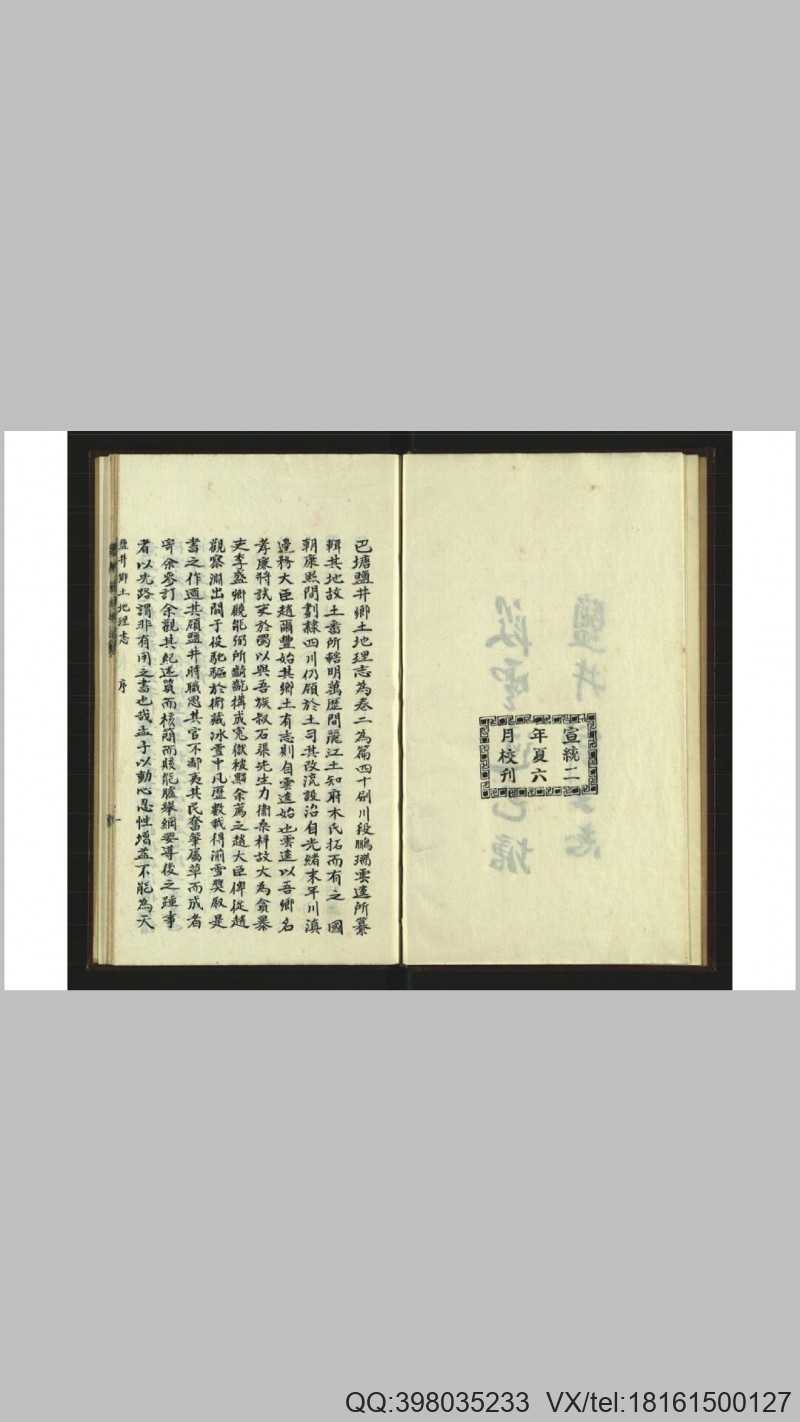 宣統二
年夏六
月校刊
巴塘鹽井鄉土地理志為卷二為篇四十劍川段鵬瑞雲逵所纂
輯其地故土番所轄明萬歷間麗江土知府木氏拓而有之 國
朝康熙間劃隸四川仍顧於土司其改流設治自光緒末年川滇
邊務大臣趙爾豐始其鄉土有志則自雲逵始也雲逵以吾鄉名
孝廉將試吏於蜀以與吾族叔石渠先生力衛桑梓故大為貪暴
吏李盛卿觀能弼所齮齕構成冤獄被黜余薦之趙大臣俾從趙
觀察淵出關于役馳驅於衛藏冰雪中凡歷數載得湔雪獎敘是
書之作適其領鹽井時職思其官不鄙夷其民奮筆屬草而成者
寄余參訂余觀其紀述質而核簡而賅能臚舉綱要導後之踵事
者以先路謂非有用之書也哉孟子以動心忍性增益不能為天
鹽井鄉土地理志 序 一
QQ:398035233 VX/tel:18161500127